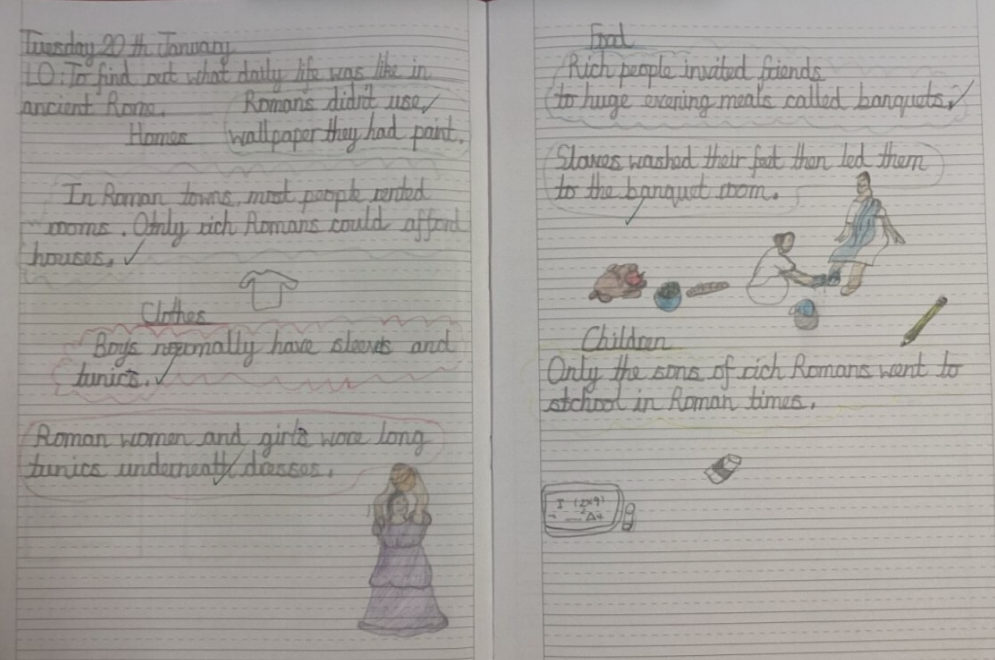 Tuesday 20th January
LO: To find out what daily life was like in
ancient Rome.
Homes
Romans didn't use
wallpaper they had paint.
In Roman towns, most people rented
rooms. Only rich Romans could afford
houses.
Clothes
Boys normally have sleeves and
tunics.
Roman women and girls wore long
tunics underneath dresses.
Food
Rich people invited friends
to huge evening meals called banquets.
Slaves washed their feet then led them
to the banquet room.
Children
Only the sons of rich Romans went to
stchool in Roman times.
A+